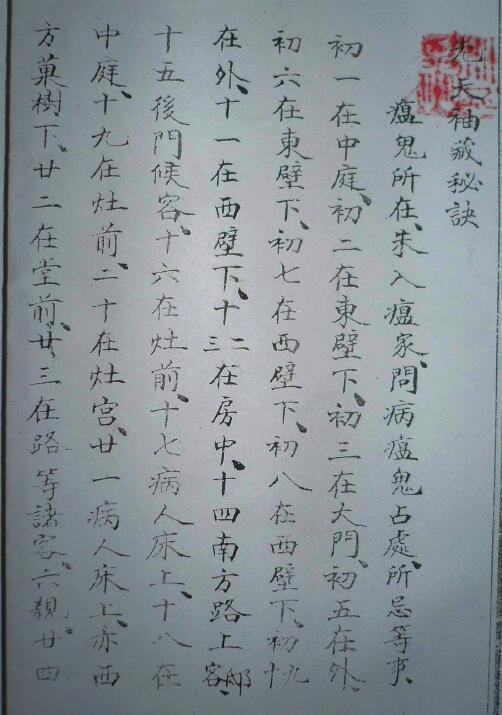 先天袖藏秘訣
瘟鬼所在、朱入瘟家、問病瘟鬼占處、所忌等事、
初一在中庭、初二在東壁下、初三在大門、初五在外、
初六在東壁下、初七在西壁下、初八在西壁下、初九十
在外、十一在西壁下、十二三在房中、十四南方路上邸客、
十五後門候客、十六在灶前、十七病人床上、十八在
中庭、十九在灶前、二十在灶宮、廿一病人床上、亦西
方菓樹下、廿二在堂前、廿三在路等諸客、六親、廿四